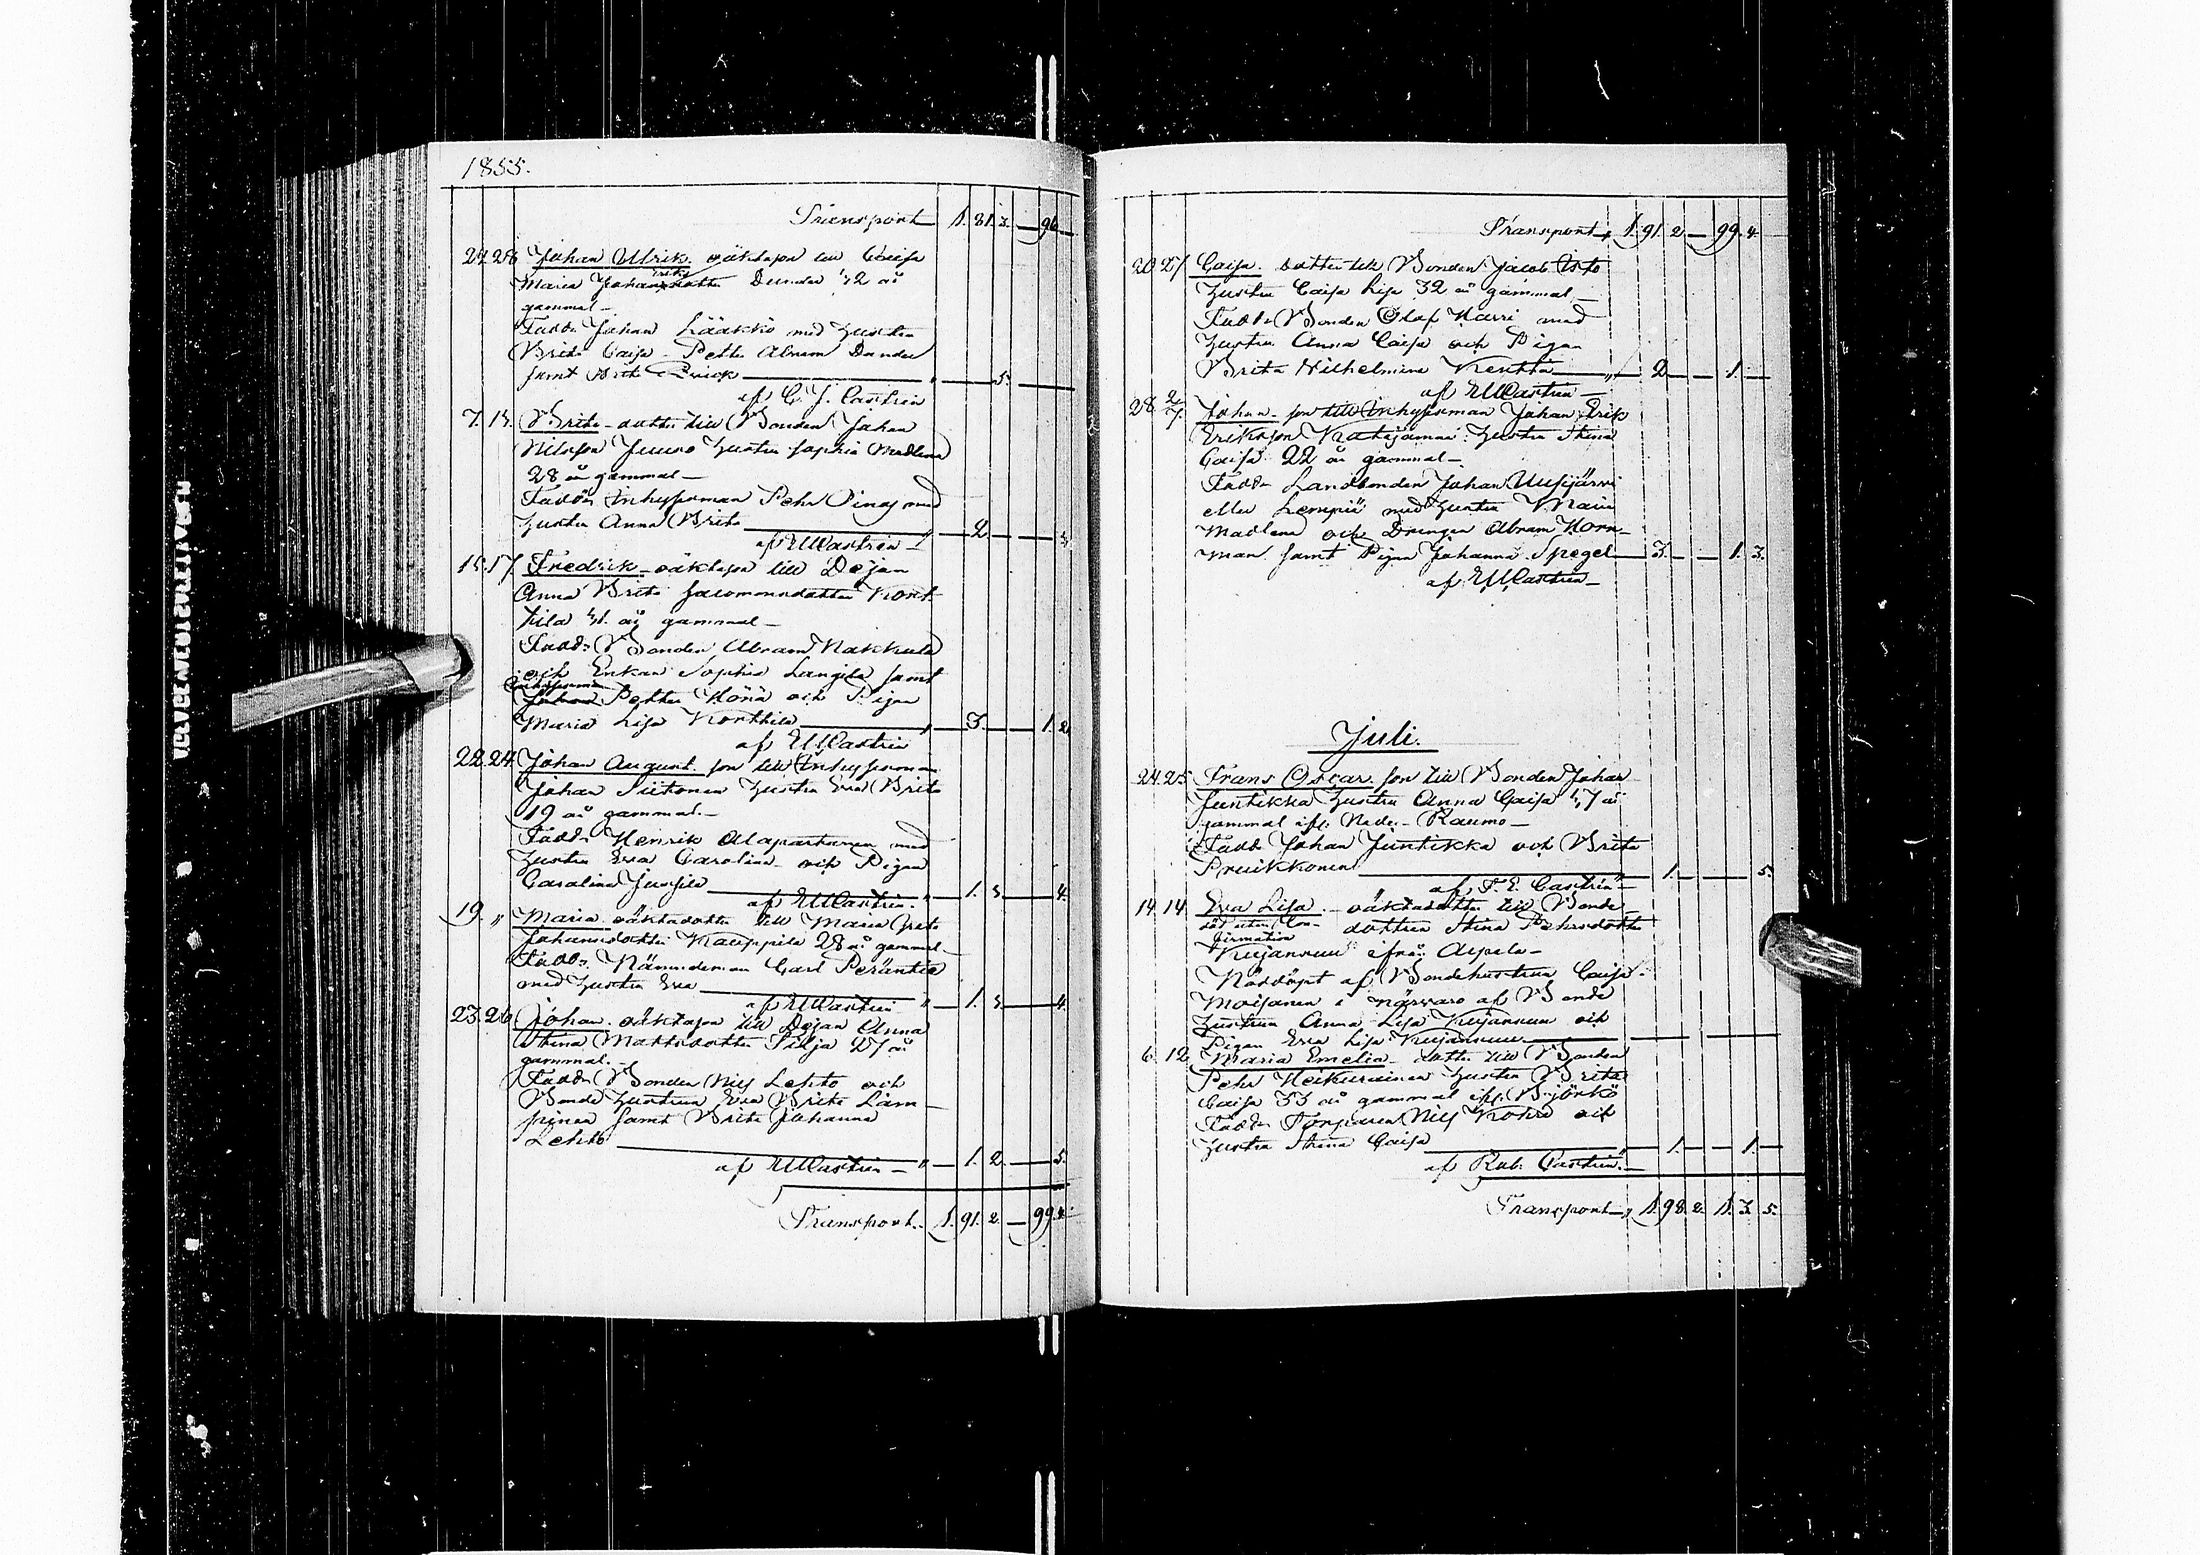 1855.
Transport 1. 81. 3. — 96 —
27 28 Johan Ulrik. oäkta son till Caisa
Maria Johansdotter Dunder 42 år
gammal —
Fadd. Johan Lääkkö med hustru
Brita Caisa — Petter Abram Dunder
samt Brita — " — 5. —
af C. J. Castrén
7. 15. Brita — dotter till Bonden Johan
Nilsson Juuso hustru Sophia Madlena
28 år gammal —
Fadd. Inhysesman Pehr Pinas med
hustru Anna Brita — " — 2 —
af Castrén —
15 17. Fredrik — oäkta son till Dejan
Anna Brita Salomonsdotter Kont-
tila 41. år gammal —
Fadd. Bonden Abram Nakkula
och Enkan Sophia Langila samt
Inhysesman
Johan Petter Hörä och Pigan
Maria Lisa Konttila — " — 3. — 1. 2.
af Castrén
22 24. Johan August. son till Inhysesman
Johan Siitonen hustru Eva Brita
19 år gammal. —
Fadd. Henrik Alapartanen med
hustru Eva Carolina — och Pigan
Carolina Jussila — " — 1. 3. — 4.
af Castrén. —
19. " Maria. oäkta dotter till Maria Greta
Johansdotter Kauppila 28 år gammal
Fadd. Nämndeman Carl Peräntie
med hustru Eva — " — 1. 3. — 4.
af Castrén
23. 26. Johan. oäkta son till Dejan Anna
Stina Mattsdotter Silja 27 år
gammal. —
Fadd. Bonden Nils Lehto och
Bonde hustrun Eva Brita Läm-
pinen samt Brita Johanna
Lehto — " — 1. 2. — 5.
af Castrén —
Transport. 1. 91. 2. — 99. 4.
Transport " 1. 91. 2. — 99. 4.
20 27. Caisa. dotter till Bonden Jacob Isto
hustru Caisa Lisa 32 år gammal. —
Fadd. Bonden Olof Harri med
hustru Anna Caisa och Pigan
Brita Wilhelmina Kenttä — " — 2 — 1. —
af Castrén —
28. 2/7. Johan — son till Inhysesman Johan Erik
Eriksson Katajamaa hustru Stina
Caisa 22 år gammal —
Fadd. Landbonden Johan Uusijärvi
eller Lempiä med hustru Maria
Madlena och Drengen Abram Horn-
man samt Pigan Johanna Spegel — 3. — 1. 3.
af Castrén —
Juli.
24 25. Frans Oscar. son till Bonden Johan
Juntikka hustru Anna Caisa 47 år
gammal ifr. Neder-Raumo —
Fadd. Johan Juntikka och Brita
Pruikkonen — 1. — 5.
af F. E. Castrén —
14. 14. Eva Lisa. — oäkta dotter till Bonde
död utan Con- dottren Stina Pehrsdotter
firmation
Kujansuu ifrån Arpela —
Nöddöpt af Bondehustrun Caisa
Maijanen i närvaro af Bonde
hustrun Anna Lisa Kujansuu och
Pigan Eva Lisa Kujansuu —
6. 12. Maria Emelia. dotter till Bonden
Pehr Heikurainen hustru Brita
Caisa 33 år gammal ifr. Björkö
Fadd. Torparen Nils Koka och
hustru Stina Caisa — 1. — 1. —
af Rob. Castrén. —
Transport — " 1. 98. 2. 1. 3. 5.